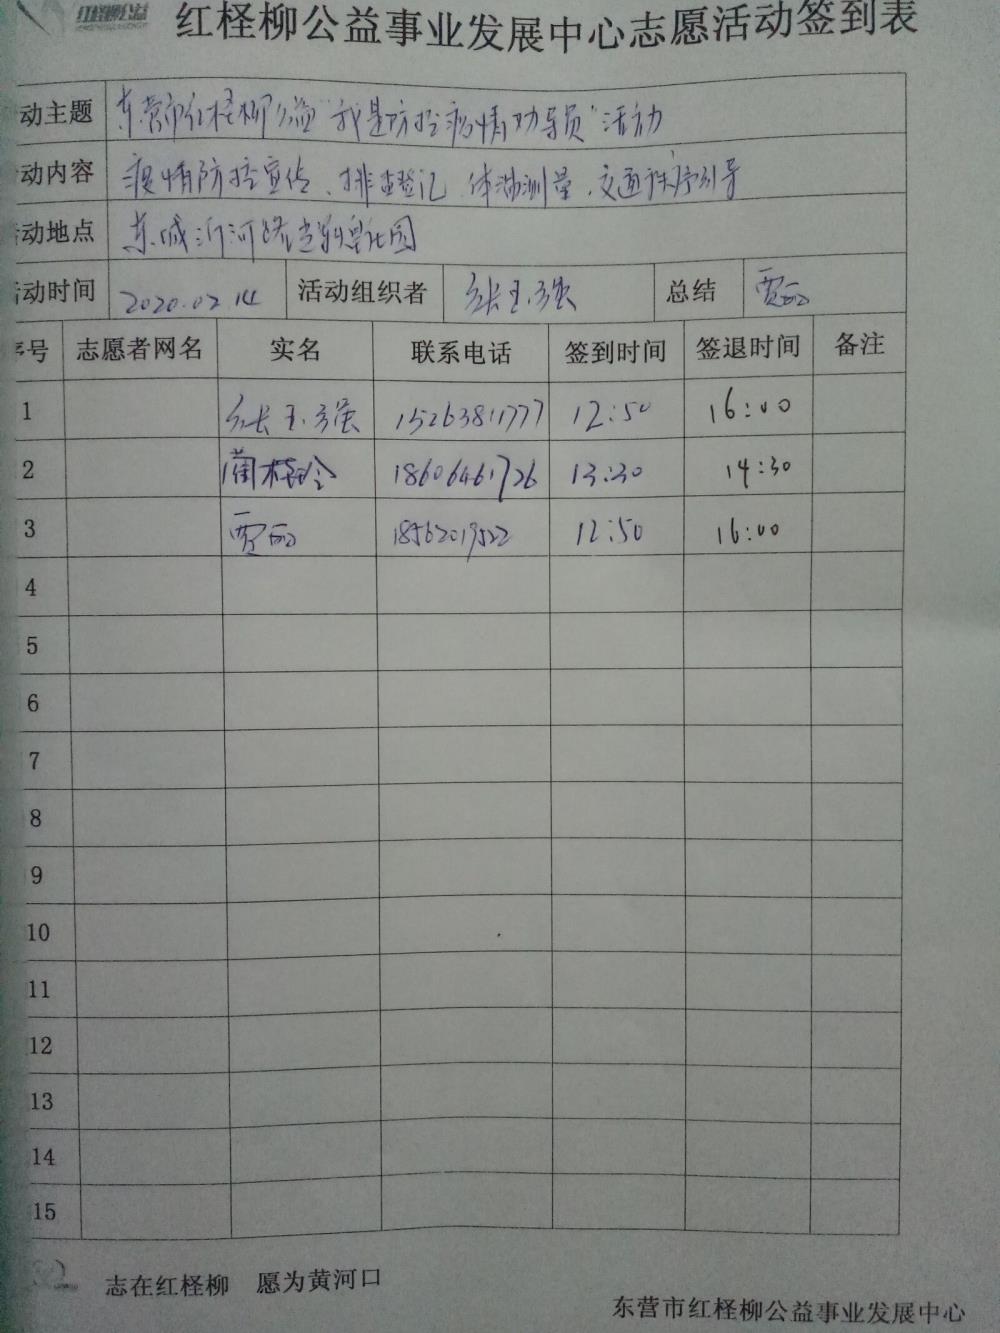 红柽柳公益
红柽柳公益事业发展中心志愿活动签到表
动主题 东营市红柽柳公益"我是防控疫情劝导员"活动
动内容 疫情防控宣传、排查登记、体温测量、交通秩序引导
活动地点 东城沂河路
活动时间 2020.02.14 活动组织者 张玉强 总结 贾丽
序号 志愿者网名 实名 联系电话 签到时间 签退时间 备注
1 张玉强 15263811777 12:50 16:00
2 18606461726 13:30 14:30
3 贾丽 18562019522 12:50 16:00
4
5
6
7
8
9
10
11
12
13
14
15
志在红柽柳 愿为黄河口
东营市红柽柳公益事业发展中心